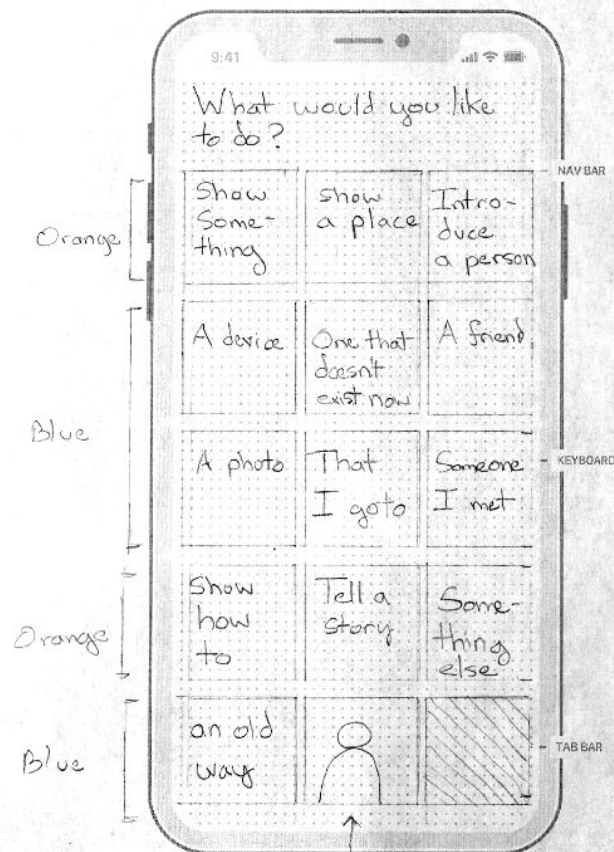 9:41
What would you like
to do?
NAV BAR
Orange
Show
Some-
thing
show
a place
Intro-
duce
a person
Blue
A device
One that
doesn't
exist now
A friend
A photo
That
I go to
Someone
I met
KEYBOARD
Orange
Show
how
to
Tell a
story
Some-
thing
else
Blue
an old
way
TAB BAR